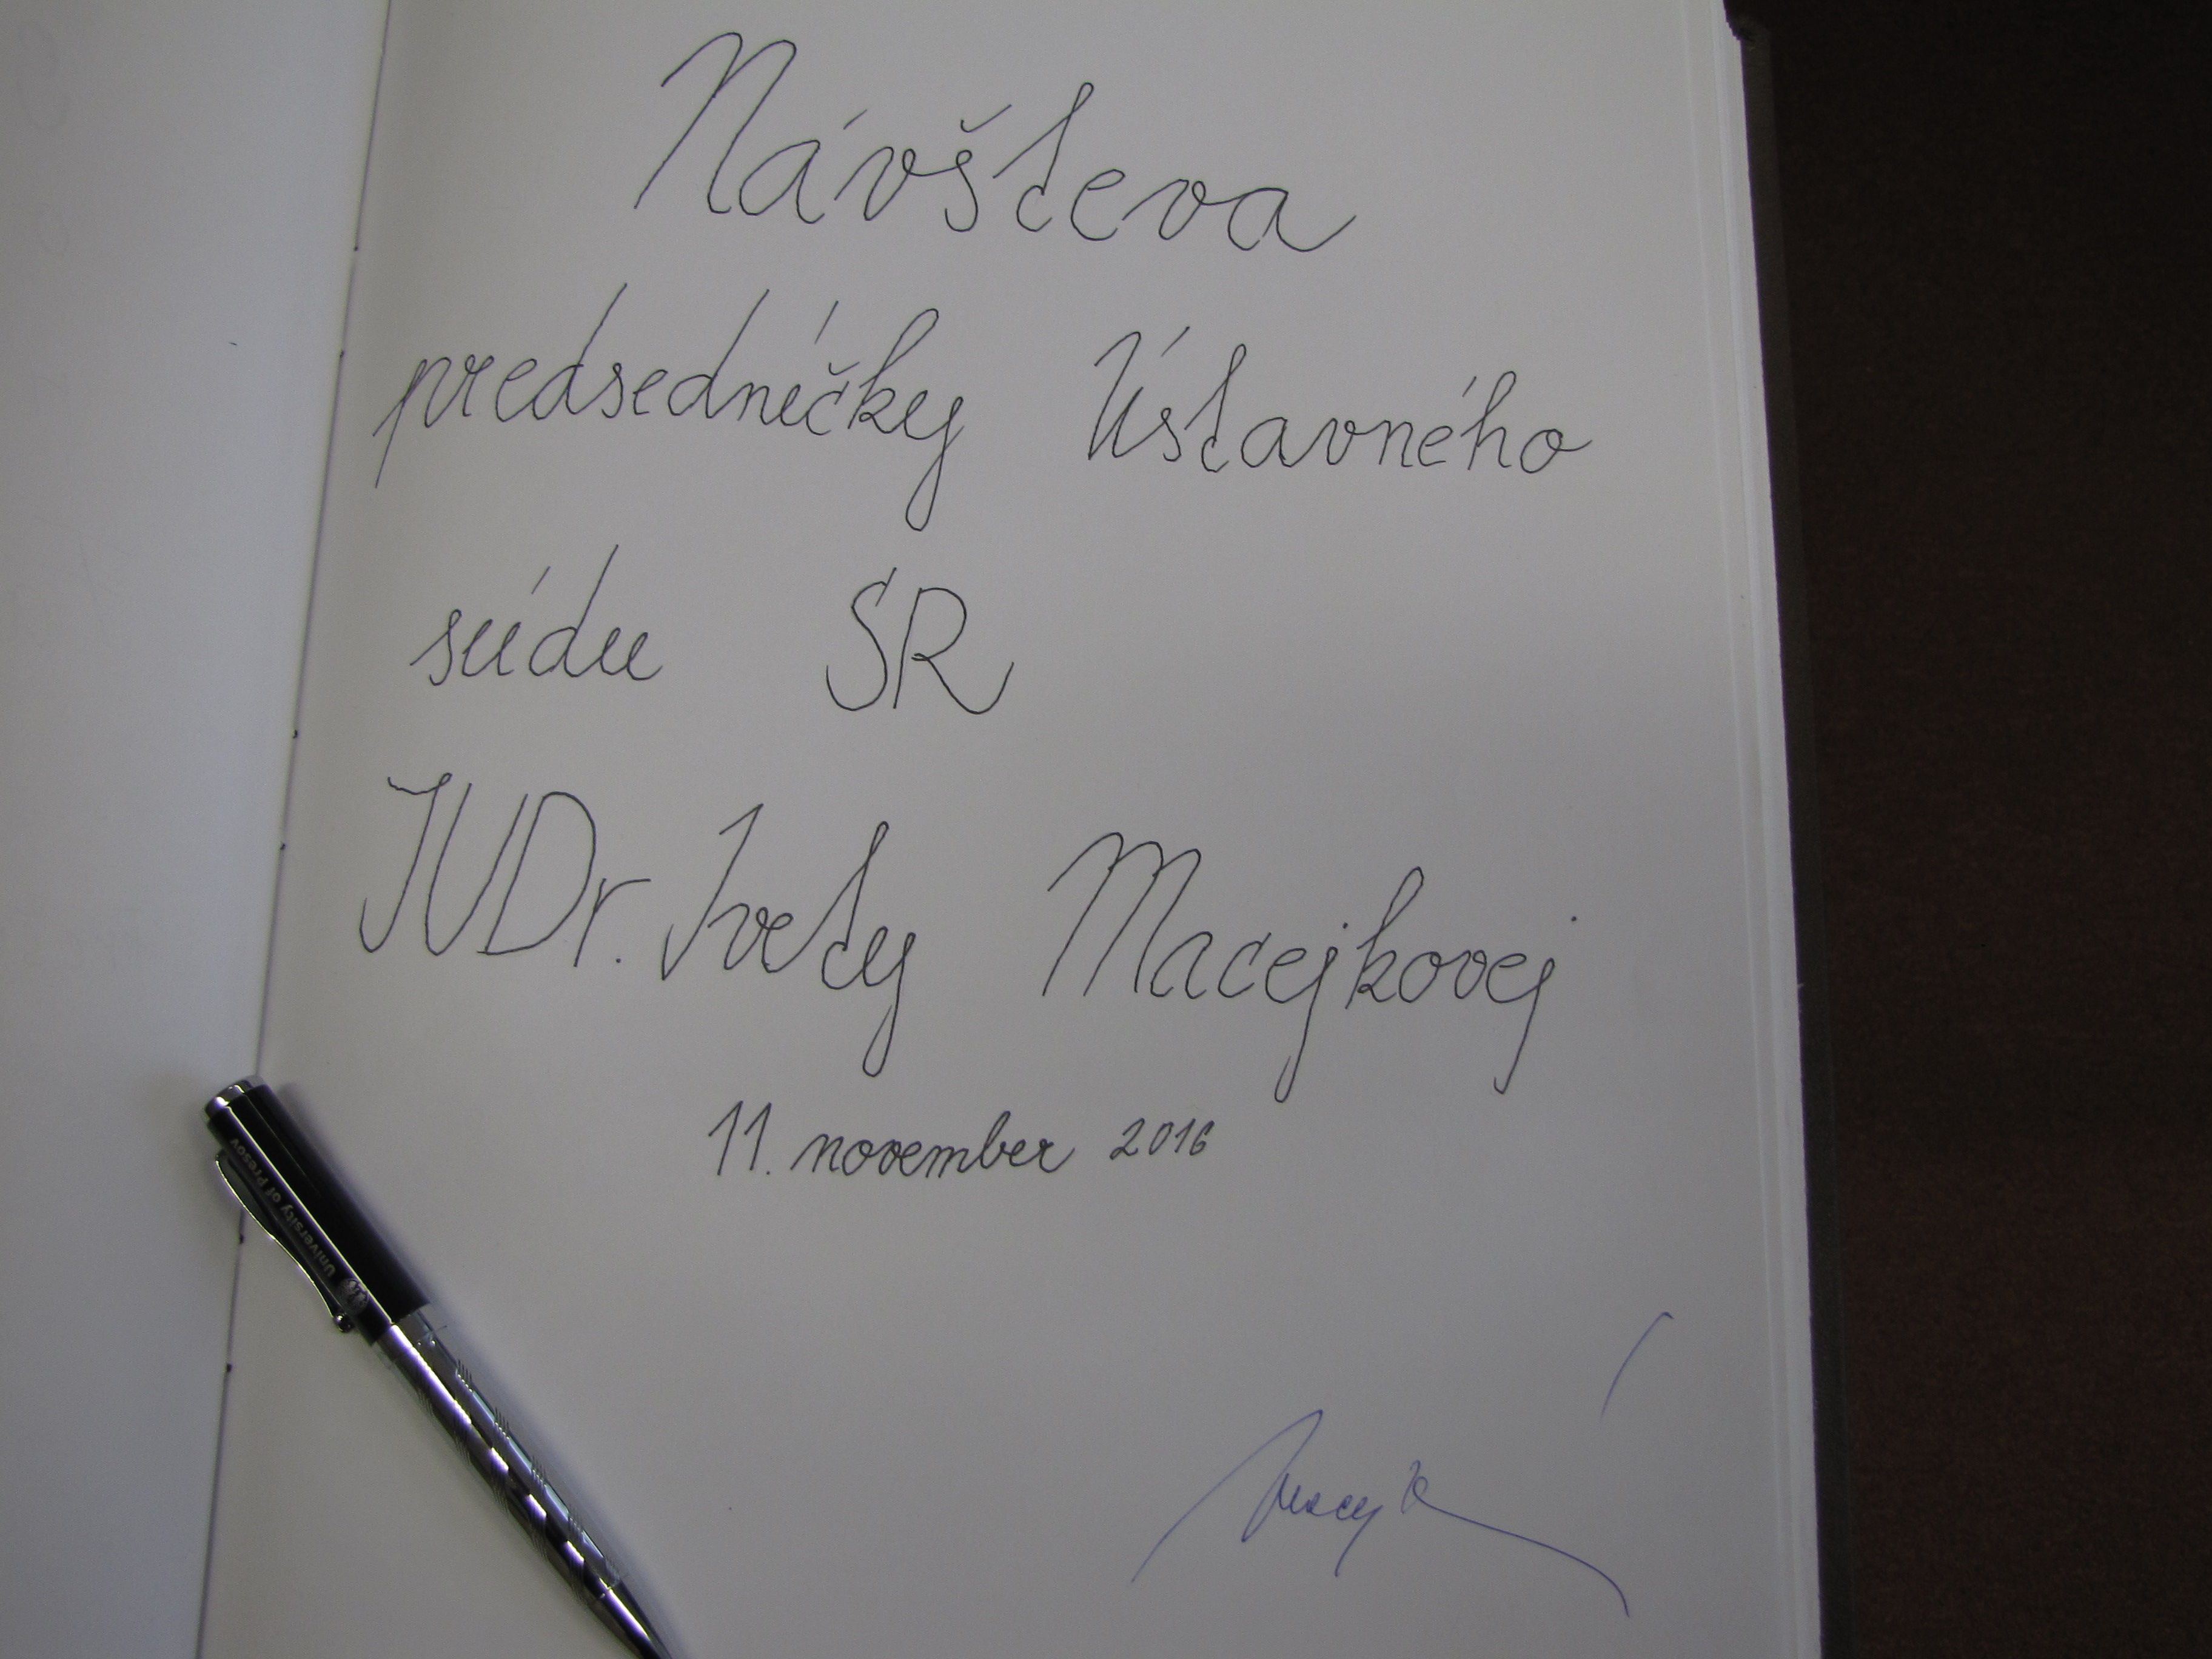 Návšteva
predsedníčky Ústavného
súdu SR
JUDr. Ivety Macejkovej
11. november 2016
University of Presov